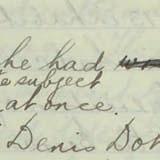 he had
subject
at once.
Denis Do